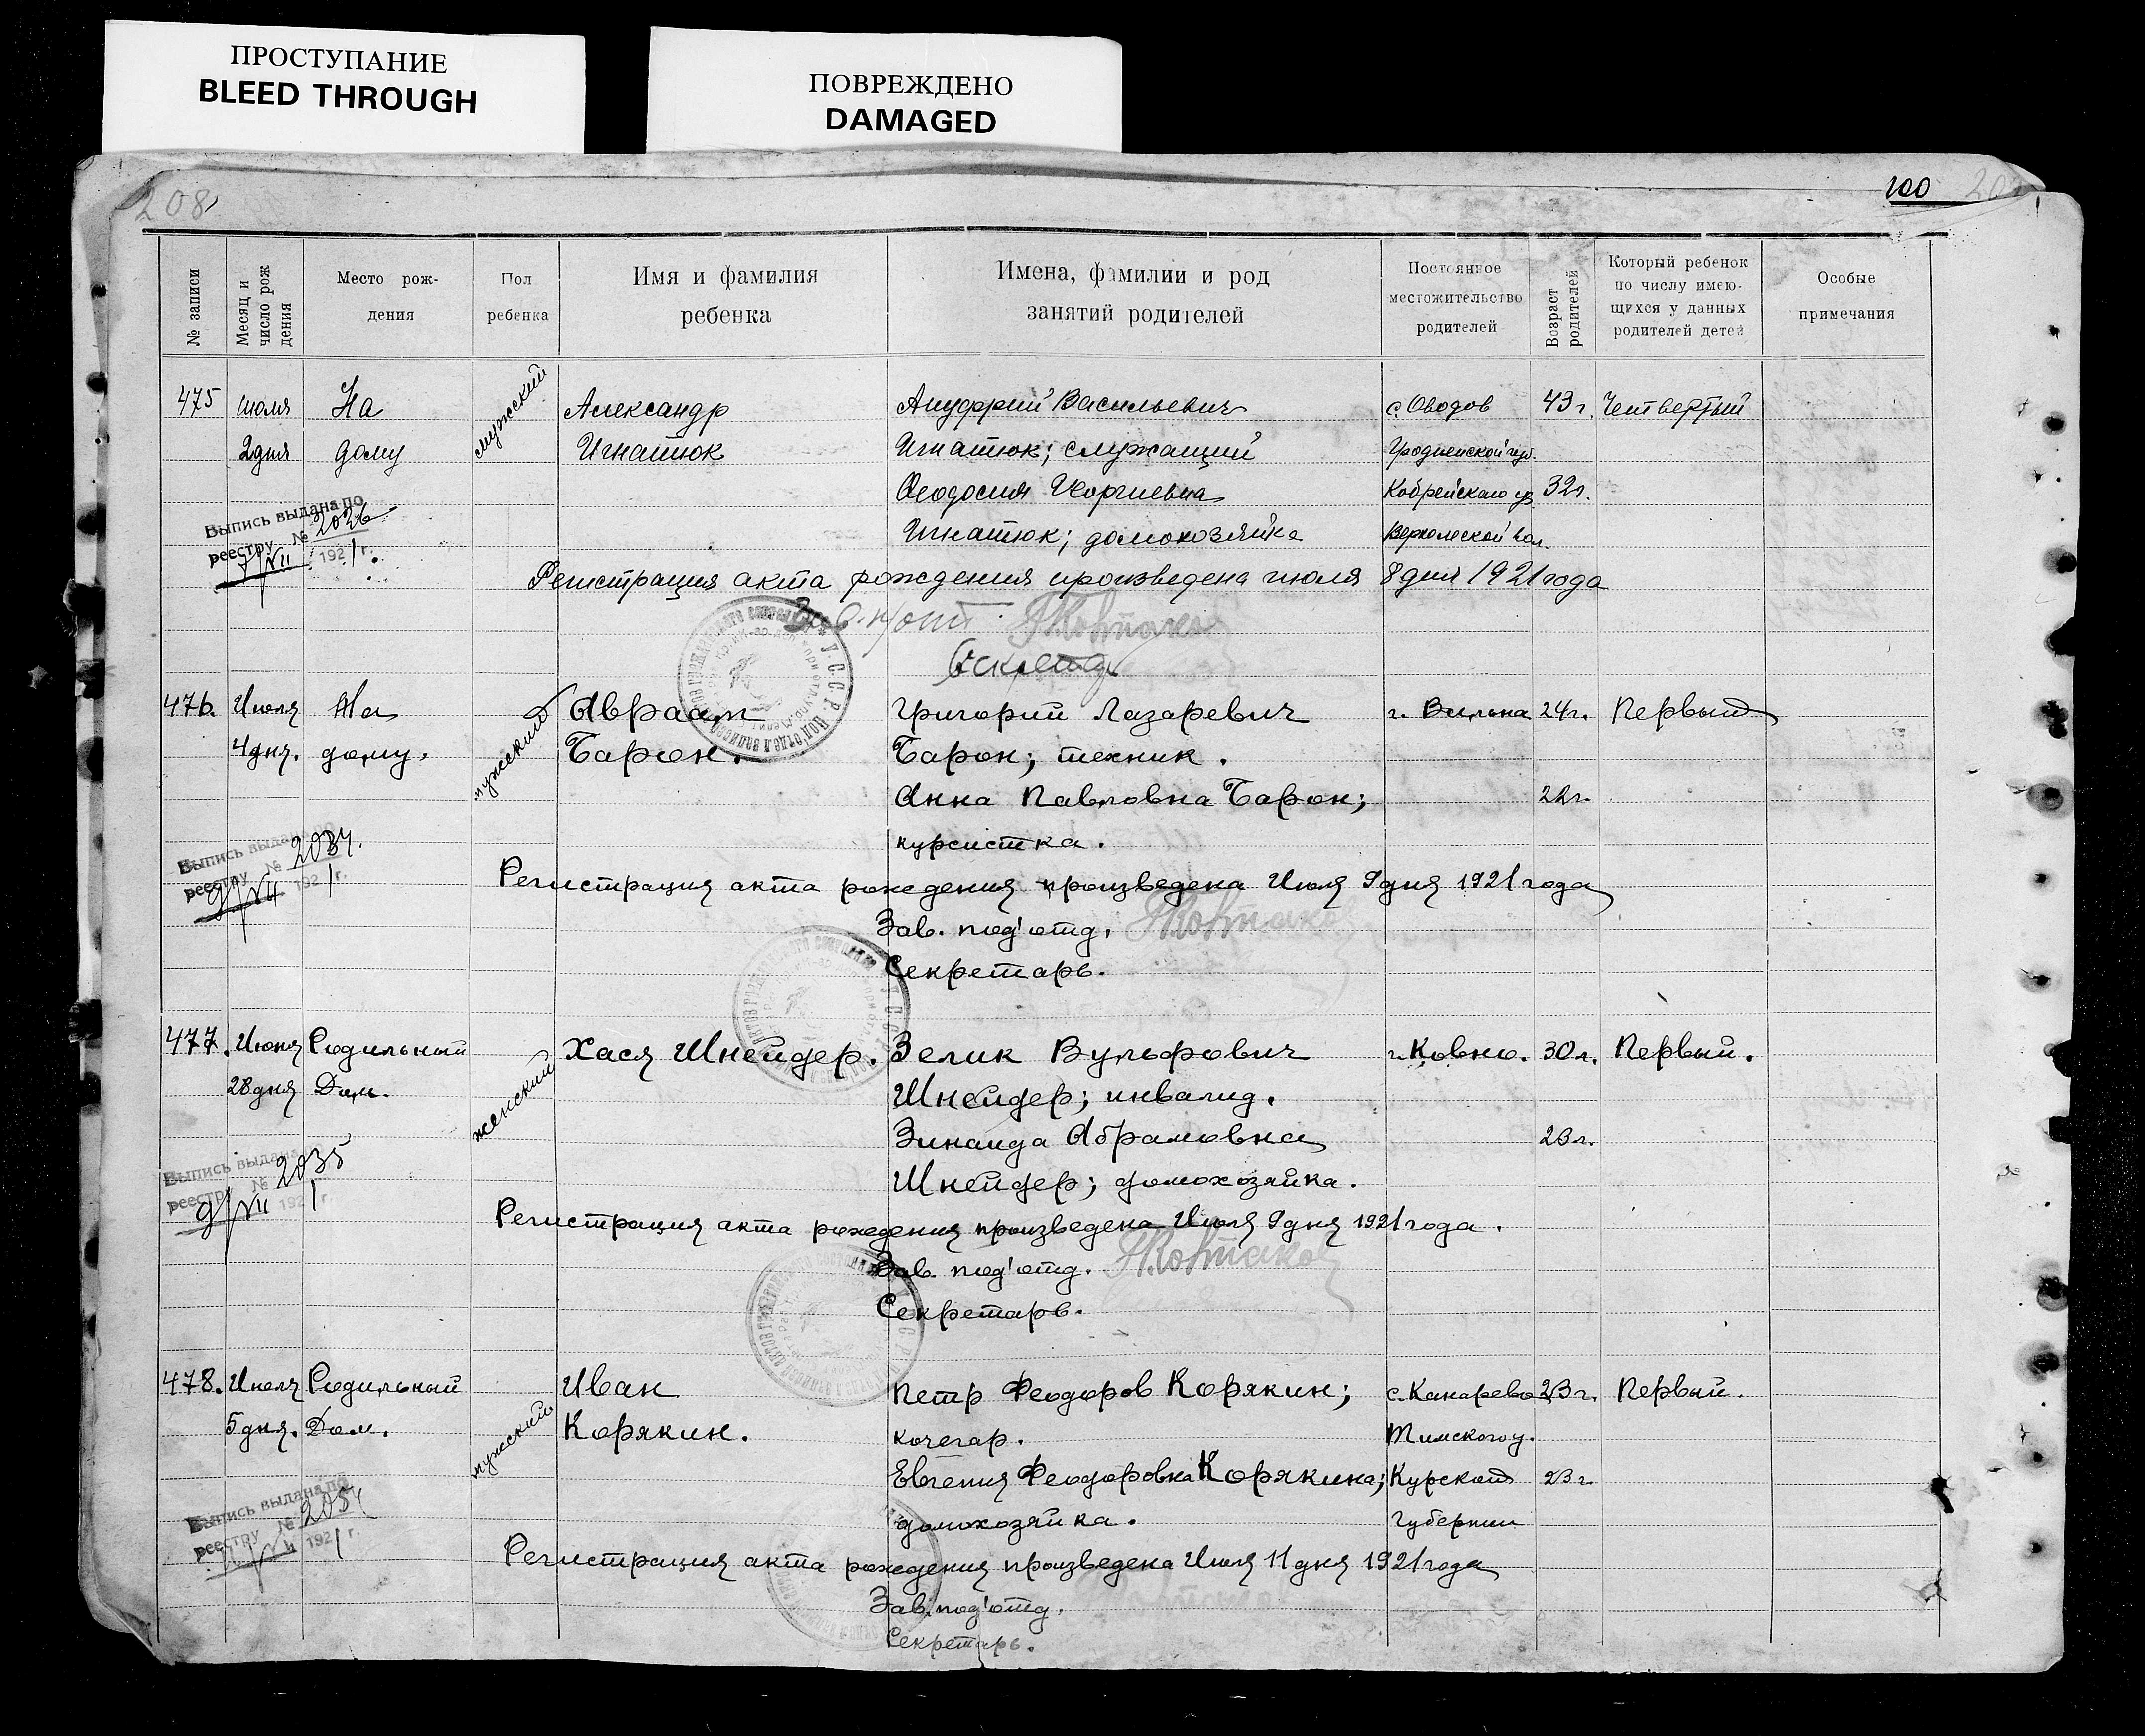 ПРОСТУПАНИЕ
BLEED THROUGH
ПОВРЕЖДЕНО
DAMAGED
208
100
№ записи
Месяц и число рож дения
Место рож-
дения
Пол
ребенка
Имя и фамилия
ребенка
Имена, фамилии и род
занятий родителей
Постоянное
местожительство
родителей
Возраст родителей
Который ребенок
по числу имею-
щихся у данных
родителей детей
Особые
примечания
475 июля На мужской Александр Ануфрий Васильевич с. Оводов 43 г. Четвертый
2 дня дому Игнатюк Игнатюк; служащий Гродненской губ.
Феодосия Георгиевна Кобрейскаго у. 32 г.
Игнатюк; домохозяйка Верхолеской вол.
Выпись выдана по
реестру № 2026
9/VII 1921 г.
Регистрация акта рождения произведена июля 8 дня 1921 года
476. Июля На мужской Авраам Григорий Лазаревич г. Вильна 24 г. Первый
4 дня. дому. Барон. Барон; техник.
Анна Павловна Барон; 22 г.
курсистка.
Выпись выдана по
реестру № 2034.
9/VII 1921 г.
Регистрация акта рождения произведена Июля 9 дня 1921 года
Зав. под'отд.
Секретарь.
477. Июня Родильный женский Хася Шнейдер. Зелик Вульфович г. Ковно. 30 л. Первый.
28 дня Дом. Шнейдер; инвалид.
Зинаида Абрамовна 23 л.
Шнейдер; домохозяйка.
Выпись выдана
реестру № 2035
9/VII 1921 г
Регистрация акта рождения произведена Июля 9 дня 1921 года.
Зав. под'отд.
Секретарь.
478. Июля Родильный мужский Иван Петр Феодоров Корякин; с. Канарево 23 г. Первый.
5 дня. Дом. Корякин. кочегар. Тимского у.
Евгения Феодоровна Корякина; Курской 23 г.
домохозяйка. Губернии
Выпись выдана по
реестру № 205
1921 г.
Регистрация акта рождения произведена Июля 11 дня 1921 года
Зав. под'отд.
Секретарь.